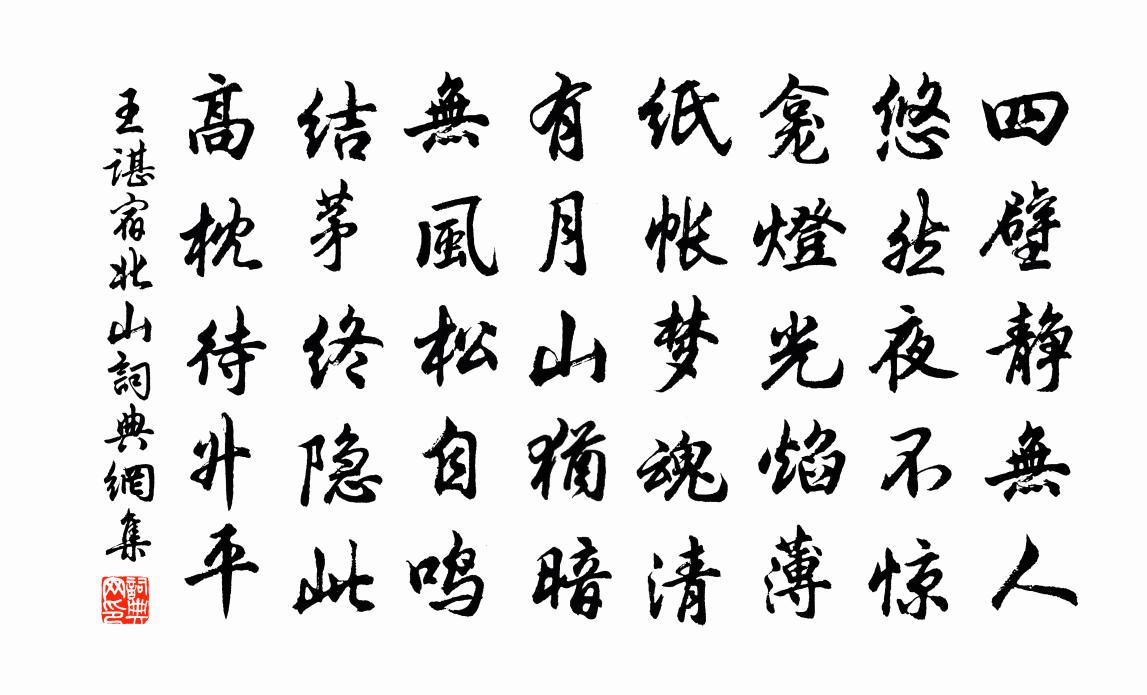 四壁静無人
悠然夜不惊
龛燈光焰薄
纸帐梦魂清
有月山犹暗
無風松自鸣
结茅终隐此
高枕待升平
王谌宿北山詞典網集
詞典网印